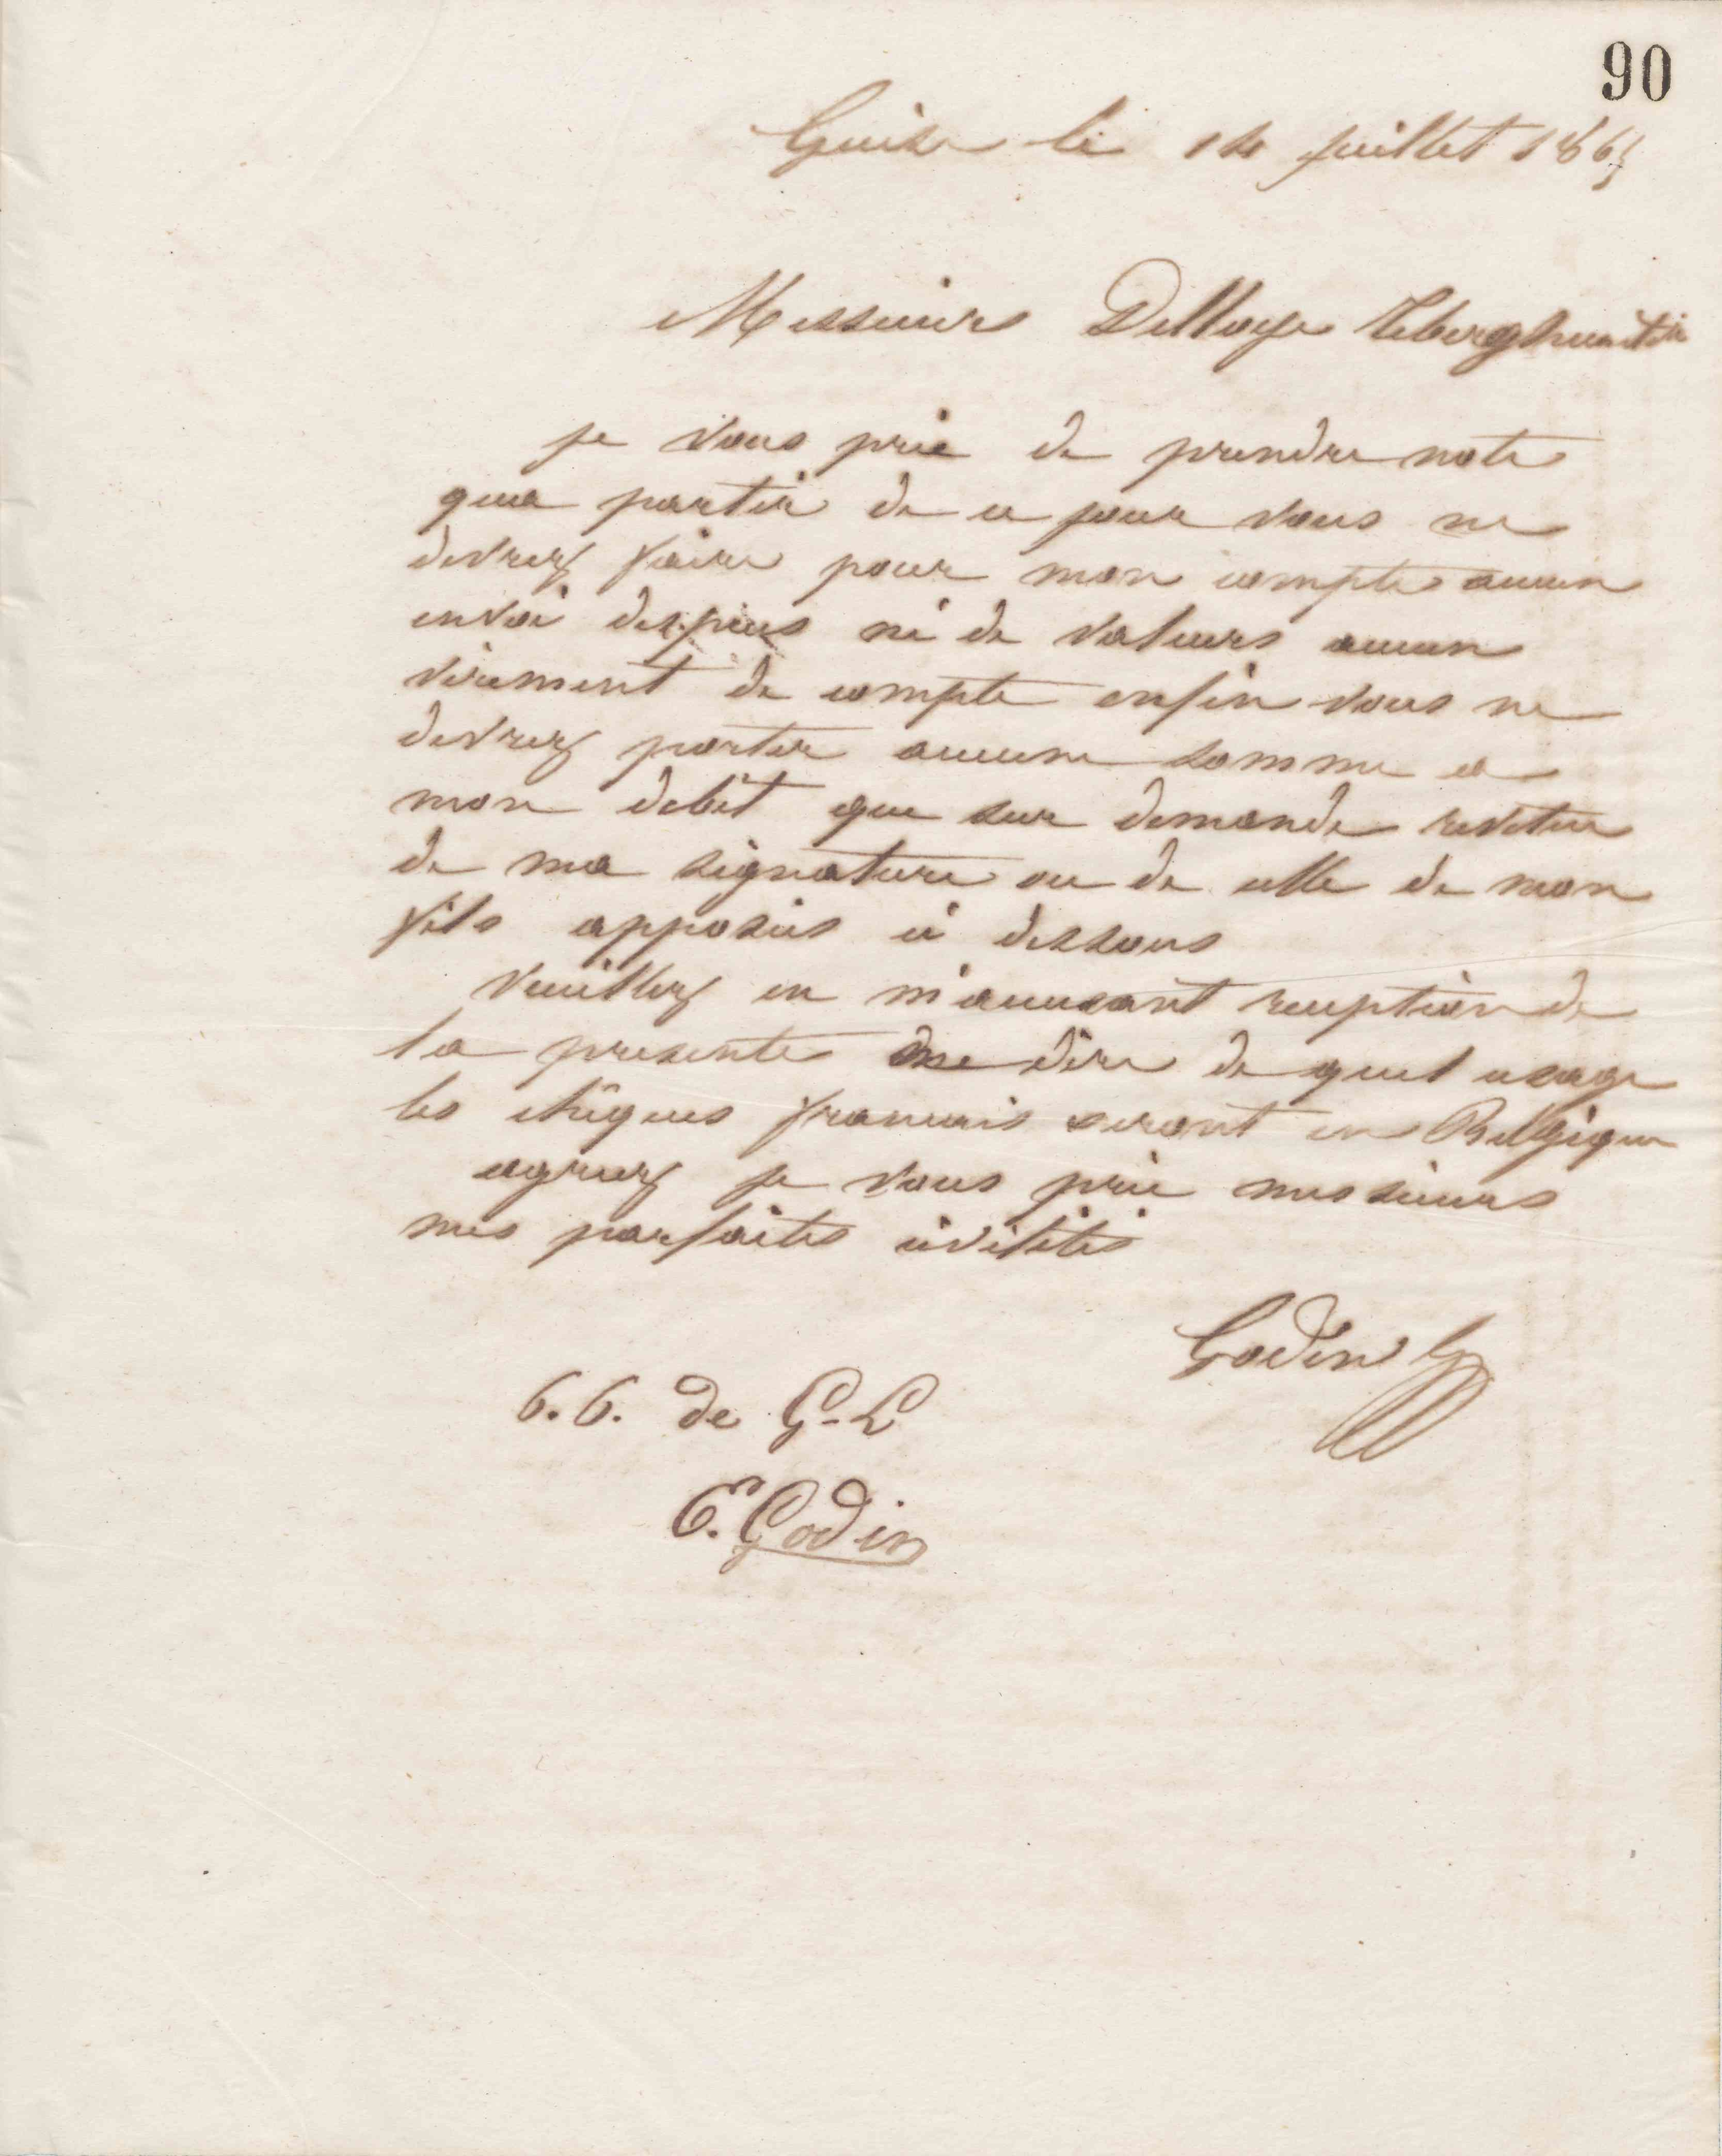 90
Guise le 14 juillet 1865
Messieurs Delloye Tiberghien & Cie
je vous prie de prendre note
qua partir de ce jour vous ne
devrez faire pour mon compte aucun
envoi despèces ni de valeurs aucun
virement de compte enfin vous ne
devrez porter aucune somme a
mon debit que sur demande revetue
de ma signature ou de celle de mon
fils apposées ci dessous
Veuillez en m'accusant reception de
la presente me dire de quel usage
les chêques francais seront en Belgique
agreez je vous prie messieurs
mes parfaites civilités
Godin
de G-L
E. Godin